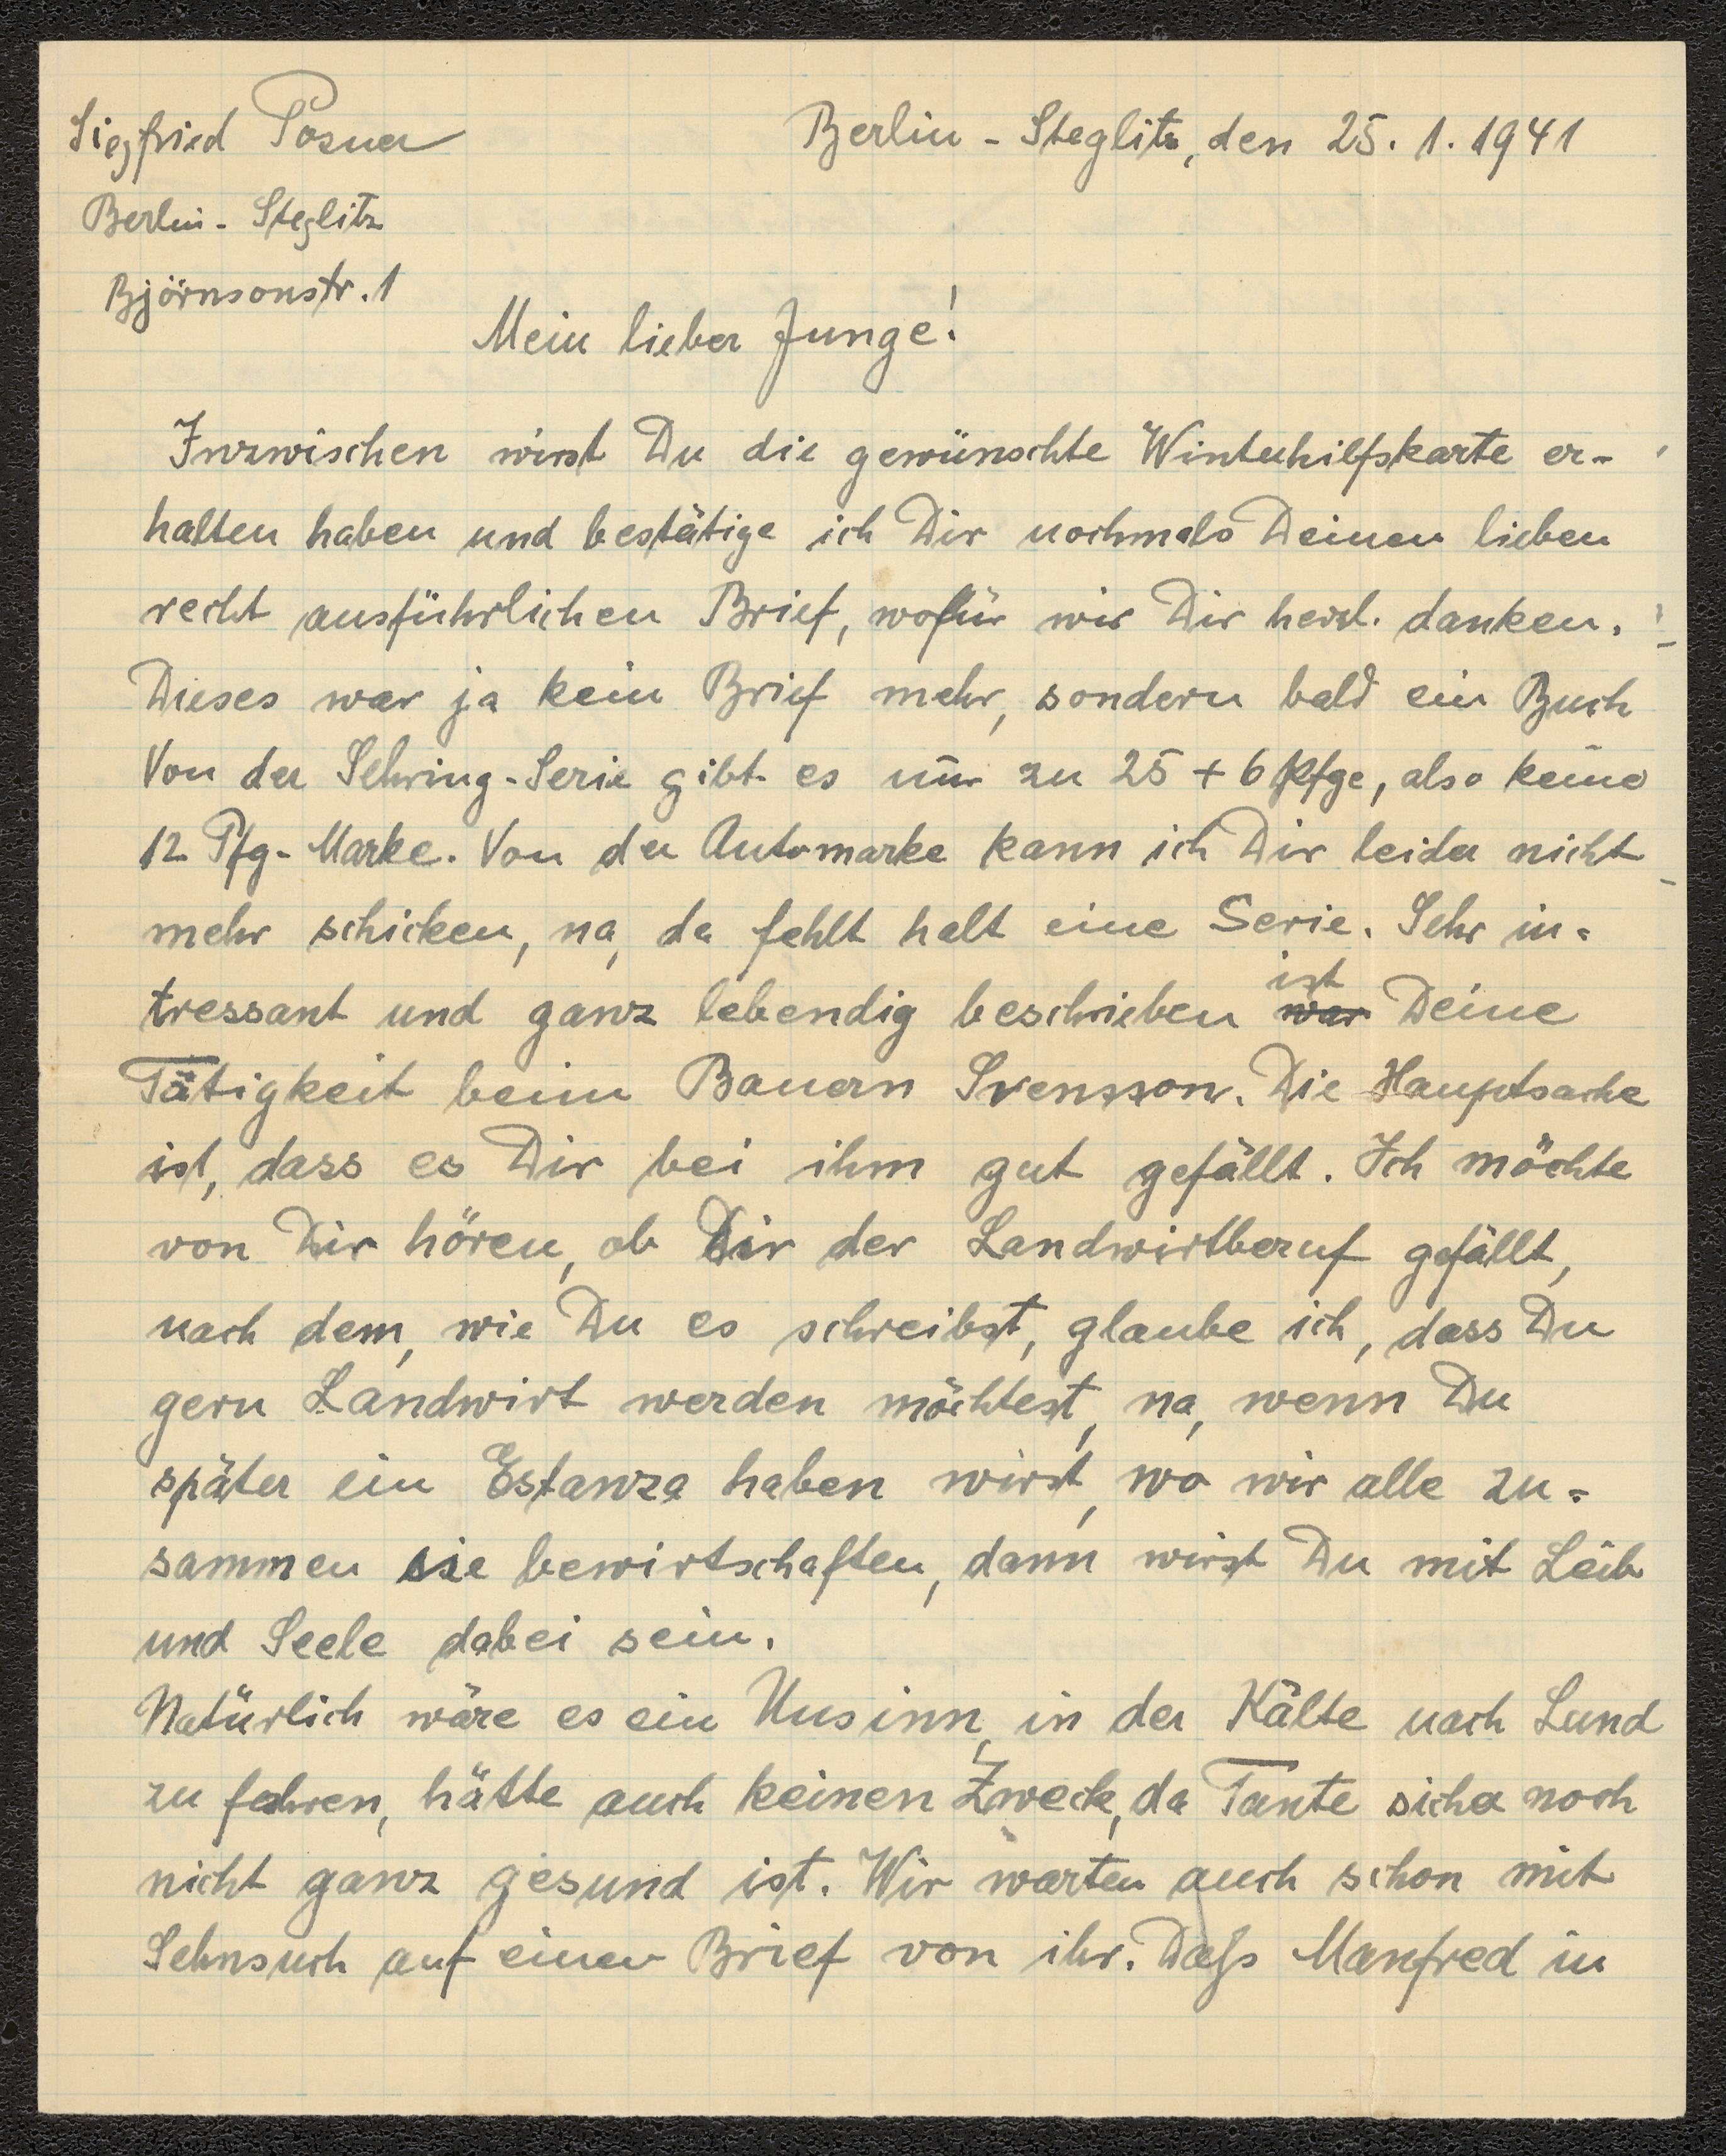 Siegfried Posner
Berlin-Steglitz, den 25.1.1941
Berlin-Steglitz
Björnsonstr. 1
Mein lieber Junge!
Inzwischen wirst Du die gewünschte Winterhilfskarte er-
halten haben und bestätige ich Dir nochmals Deinen lieben
recht ausführlichen Brief, wofür wir Dir herzl. danken.
Dieses war ja kein Brief mehr, sondern bald ein Buch
Von der Sehring-Serie gibt es nur zu 25 + 6 Pfge, also keine
12 Pfg-Marke. Von der Automarke kann ich Dir leider nicht
mehr schicken, na, da fehlt halt eine Serie. Sehr in=
tressant und ganz lebendig beschrieben ist war Deine
Tätigkeit beim Bauern Svensson. Die Hauptsache
ist, dass es Dir bei ihm gut gefällt. Ich möchte
von Dir hören, ob Dir der Landwirtberuf gefällt,
nach dem, wie Du es schreibst, glaube ich, dass Du
gern Landwirt werden möchtest, na, wenn Du
später ein Estanza haben wirst, wo wir alle zu=
sammen sie bewirtschaften, dann wirst Du mit Leib
und Seele dabei sein.
Natürlich wäre es ein Unsinn, in der Kälte nach Lund
zu fahren, hätte auch keinen Zweck, da Tante sicher noch
nicht ganz gesund ist. Wir warten auch schon mit
Sehnsuch auf einen Brief von ihr. Daß Manfred in